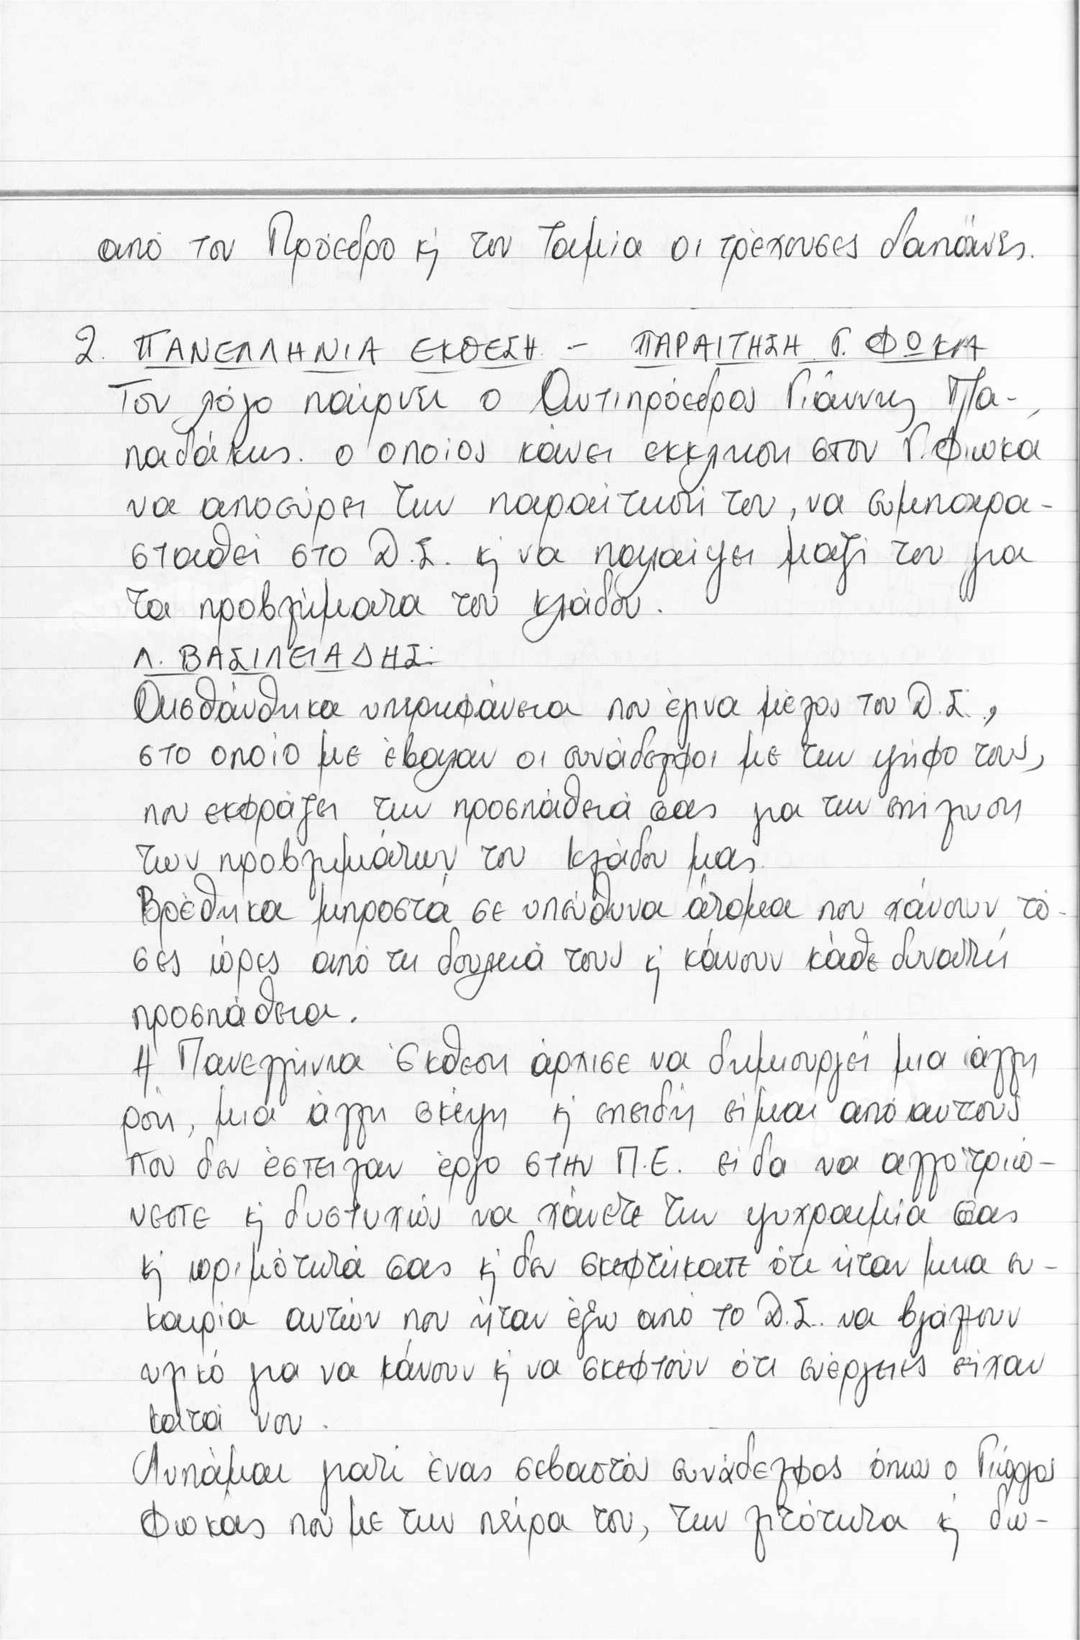 από τον Πρόεδρο κ̀ τον Ταμία οι τρέχουσες δαπάνες.
2. ΠΑΝΕΛΛΗΝΙΑ ΕΚΘΕΣΗ - ΠΑΡΑΙΤΗΣΗ Γ. ΦΩΚΑ
Τον λόγο παίρνει ο Αντιπρόεδρος Γιάννης Πα-
παδάκης. ο οποίος κάνει έκκληση στον Γ. Φωκά
να αποσύρει την παραίτησή του, να συμπαρα-
σταθεί στο Δ.Σ. κ̀ να παλαίψει μαζί του για
τα προβλήματα του κλάδου.
Λ. ΒΑΣΙΛΕΙΑΔΗΣ:
Αισθάνθηκα υπερηφάνεια που έγινα μέλος του Δ.Σ.,
στο οποίο με έβαλαν οι συνάδελφοι με την ψήφο τους,
που εκφράζει την προσπάθειά σας για την επίλυση
των προβλημάτων του κλάδου μας.
Βρέθηκα μπροστά σε υπεύθυνα άτομα που χάνουν τό-
σες ώρες από τη δουλειά τους κ̀ κάνουν κάθε δυνατή
προσπάθεια.
Η Πανελλήνια Έκθεση άρχισε να δημιουργεί μια άλλη
ροή, μια άλλη σκέψη κ̀ επειδή είμαι από αυτούς
που δεν έστειλαν έργο στην Π.Ε. είδα να αλλοτριώ-
νεστε κ̀ δυστυχώς να χάνετε την ψυχραιμία σας
κ̀ ωριμότητά σας κ̀ δεν σκεφτήκατε ότι ήταν μια ευ-
καιρία αυτών που ήταν έξω από το Δ.Σ. να βγάλουν
υλικό για να κάνουν κ̀ να σκεφτούν ότι ενέργειες είχαν
κατά νου.
Λυπάμαι γιατί ένας σεβαστός συνάδελφος όπως ο Γιώργος
Φωκάς που με την πείρα του, την λιτότητα κ̀ δω-